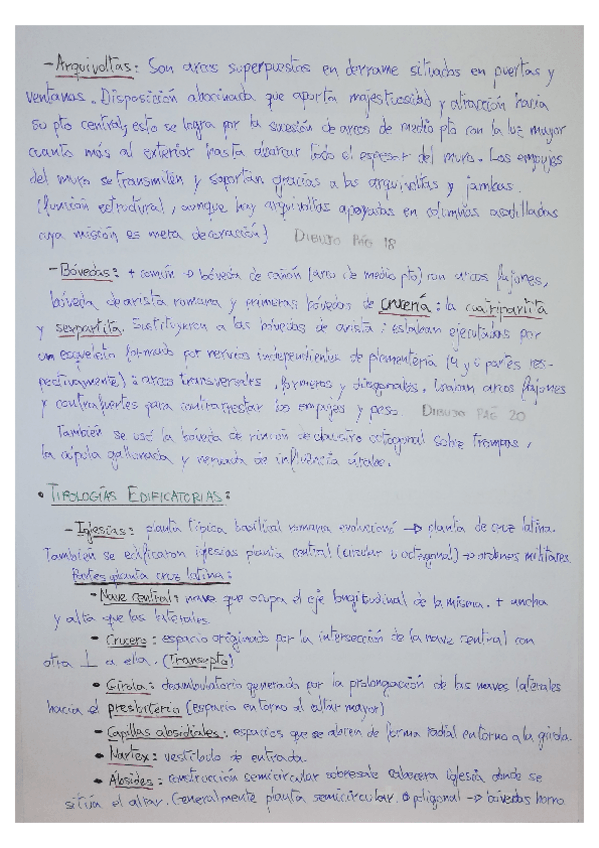 - Arquivoltas: Son arcos superpuestos en derrame situados en puertas y
ventanas. Disposición abocinada que aporta majestuosidad y atracción hacia
su pto central; esto se logra por la sucesión de arcos de medio pto con la luz mayor
cuanto más al exterior hasta alcanzar todo el espesor del muro. Los empujes
del muro se transmiten y soportan gracias a las arquivoltas y jambas.
(función estructural, aunque hay arquivoltas apoyadas en columnas acodilladas
cuya misión es meta decoración) DIBUJO PÁG 18
- Bóvedas: + común → bóveda de cañón (arco de medio pto) con arcos fajones,
bóveda de arista romana y primeras bóvedas de crucería: la cuatripartita
y sexpartita. Sustituyeron a las bóvedas de arista: estaban ejecutadas por
un esqueleto formado por nervios independientes de plementería (4 y 6 partes res-
pectivamente): arcos transversales, formeros y diagonales. Usaban arcos fajones
y contrafuertes para contrarrestar los empujes y peso. DIBUJO PÁG 20
También se usó la bóveda de rincón de claustro octogonal sobre trompas,
la cúpola gallonada y nervada de influencia árabe.
• TIPOLOGÍAS EDIFICATORIAS:
- Iglesias: planta típica basilical romana evolucionó → planta de cruz latina.
También se edificaron iglesias planta central (circular u octogonal) → ordenes militares.
Partes planta cruz latina:
• Nave central: nave que ocupa el eje longitudinal de la misma. + ancha
y alta que las laterales.
• Crucero: espacio originado por la intersección de la nave central con
otra ⊥ a ella. (Transepto)
• Girola: deambulatorio generado por la prolongación de las naves laterales
hacia el presbiterio (espacio entorno al altar mayor)
• Capillas absidiales: espacios que se abren de forma radial entorno a la girola.
• Nartex: vestíbulo de entrada.
• Ábsides: construcción semicircular sobresale cabecera iglesia donde se
situa el altar. Generalmente planta semicircular. o poligonal → bóvedas horno